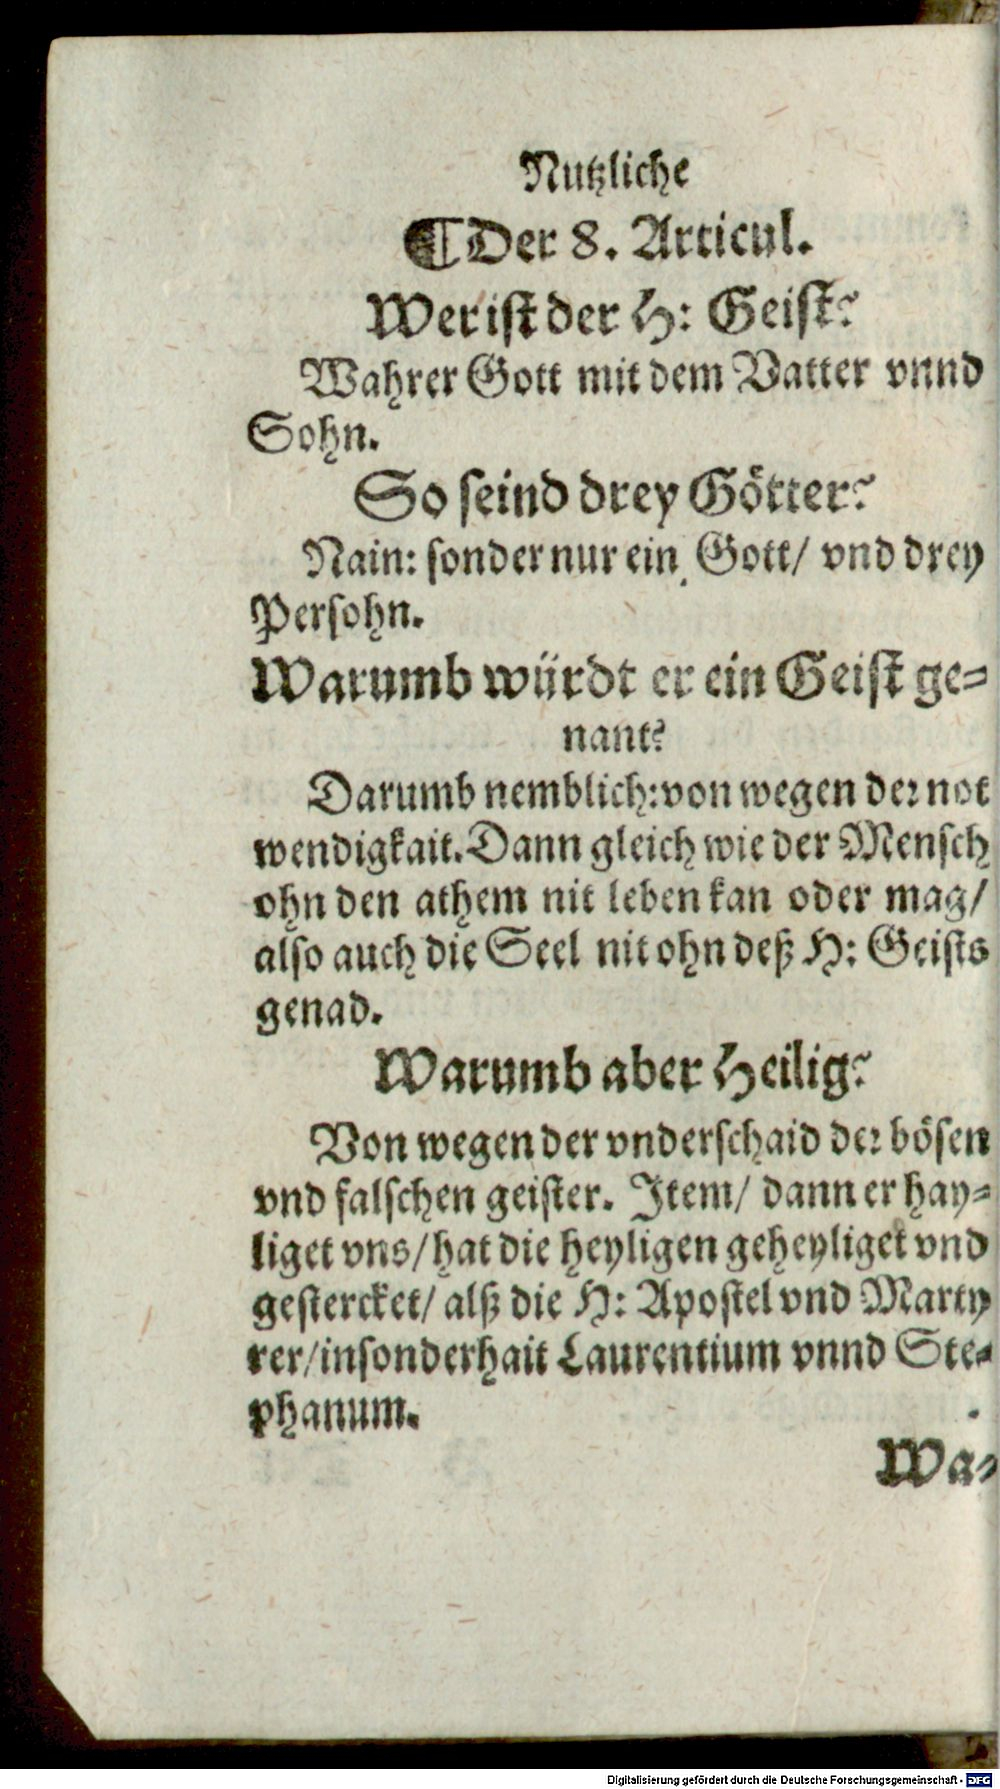 Nutzliche
¶Der 8. Articul.
Wer ist der H: Geist?
Wahrer Gott mit dem Vatter vnnd
Sohn.
So seind drey Götter?
Nain: sonder nur ein Gott/ vnd drey
Persohn.
Warumb würdt er ein Geist ge-
nant?
Darumb nemblich: von wegen der not
wendigkait. Dann gleich wie der Mensch
ohn den athem nit leben kan oder mag/
also auch die Seel nit ohn deß H: Geists
genad.
Warumb aber Heilig?
Von wegen der vnderschaid der bösen
vnd falschen geister. Item/ dann er hay-
liget vns/ hat die heyligen geheyliget vnd
gestercket/ alß die H: Apostel vnd Marty
rer/ insonderhait Laurentium vnnd Ste-
phanum.
Wa-
Digitalisierung gefördert durch die Deutsche Forschungsgemeinschaft - DFG